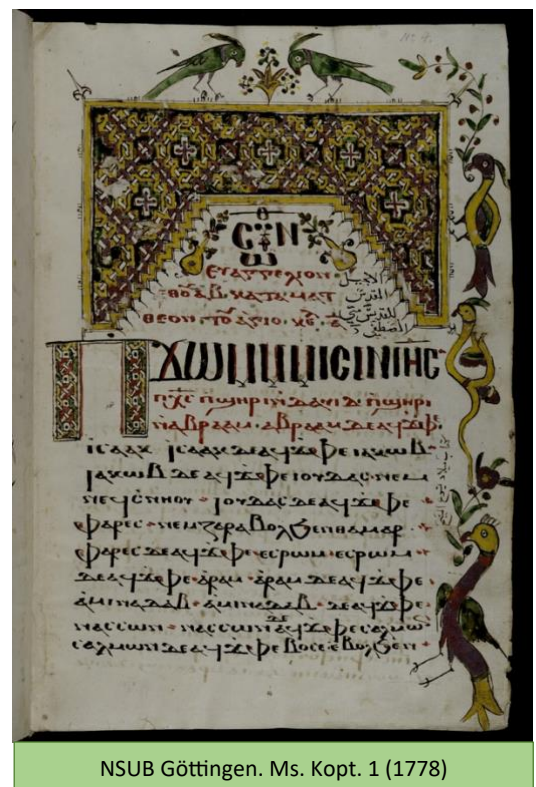 Nr. 1.
ⲥⲩⲛ
ⲑⲱ
ⲉⲩⲁⲅⲅⲉⲗⲓⲟⲛ الانجيل
ⲕⲁⲧⲁ ⲙⲁⲧ المقدس
ⲑⲉⲟⲛ · ⲧⲟⲩ ⲁⲅⲓⲟ · ⲕⲉ · ⲁ للقديس متي
ⲡϫⲱⲙⲙⲙⲓⲥⲓⲛⲓⲏⲥ
ⲡⲭⲥ ⲡϣⲏⲣⲓ ⲛⲇⲁⲩⲓⲇ ⲡϣⲏⲣⲓ
ⲛⲁⲃⲣⲁⲁⲙ · ⲁⲃⲣⲁⲁⲙ ⲇⲉ ⲁϥϫⲫⲉ
ⲓⲥⲁⲁⲕ · ⲓⲥⲁⲁⲕ ⲇⲉ ⲁϥϫⲫⲉ ⲓⲁⲕⲱⲃ
ⲓⲁⲕⲱⲃ ⲇⲉ ⲁϥϫⲫⲉ ⲓⲟⲩⲇⲁⲥ ⲛⲉⲙ
ⲛⲉϥⲥⲛⲏⲟⲩ · ⲓⲟⲩⲇⲁⲥ ⲇⲉ ⲁϥϫⲫⲉ
ⲫⲁⲣⲉⲥ · ⲛⲉⲙ ⲍⲁⲣⲁ ⲉⲃⲟⲗϧⲉⲛ ⲑⲁⲙⲁⲣ
ⲫⲁⲣⲉⲥ ⲇⲉ ⲁϥϫⲫⲉ · ⲉⲥⲣⲱⲙ · ⲉⲥⲣⲱⲙ
ⲇⲉ ⲁϥϫⲫⲉ · ⲁⲣⲁⲙ · ⲁⲣⲁⲙ ⲇⲉ ⲁϥϫⲫⲉ
ⲁⲙⲓⲛⲁⲇⲁⲃ · ⲁⲙⲓⲛⲁⲇⲁⲃ · ⲇⲉ ⲁϥϫⲫⲉ
ⲛⲁⲥⲥⲱⲛ · ⲛⲁⲥⲥⲱⲛ ⲇⲉ ⲁϥϫⲫⲉ ⲥⲁⲗⲙⲱⲛ
ⲥⲁⲗⲙⲱⲛ ⲇⲉ ⲁϥϫⲫⲉ ⲃⲟⲉⲥ ⲉⲃⲟⲗϧⲉⲛ
NSUB Göttingen. Ms. Kopt. 1 (1778)